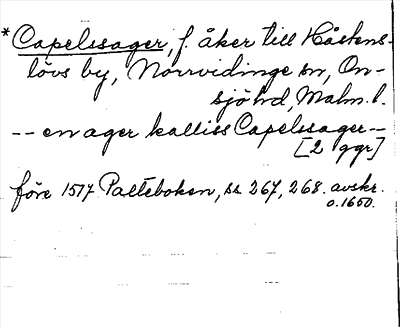 *Capelssager, f. åker till Håstens-
lövs by, Norrvidinge sn, On-
sjö hd, Malm. l.
-- en ager kalliss Capelssager --
[2 ggr]
före 1517 Palteboken, ss 267, 268. avskr.
o. 1650.